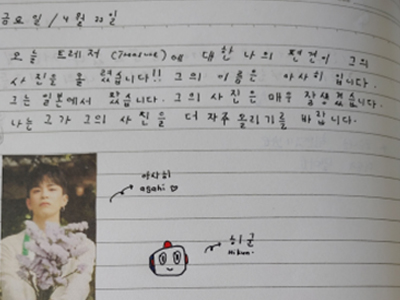 금요일 / 4월 22일
오늘 트레저 (Treasure)에 대한 나의 편견이 그의
사진을 올렸습니다!! 그의 이름은 아사히 입니다.
그는 일본에서 왔습니다. 그의 사진은 매우 잘생겼습니다.
나는 그가 그의 사진을 더 자주 올리기를 바랍니다.
아사히
asahi ♡
히쿤
Hikun.